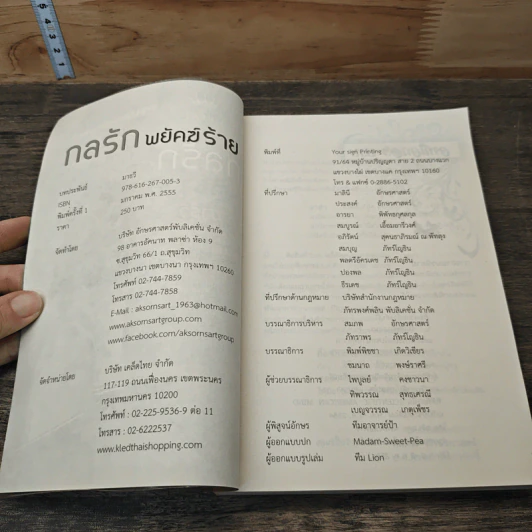 กลรัก พยัคฆ์ร้าย
บทประพันธ์ มายวี
ISBN 978-616-267-005-3
พิมพ์ครั้งที่ 1 มกราคม พ.ศ. 2555
ราคา 250 บาท
จัดทำโดย บริษัท อักษรศาสตร์พับลิเคชั่น จำกัด
98 อาคารอัคนาท พลาซ่า ห้อง 9
ซ.สุขุมวิท 66/1 ถ.สุขุมวิท
แขวงบางนา เขตบางนา กรุงเทพฯ 10260
โทรศัพท์ 02-744-7859
โทรสาร 02-744-7858
E-Mail : aksornsart_1963@hotmail.com
www.aksornsartgroup.com
www.facebook.com/aksornsartgroup
จัดจำหน่ายโดย บริษัท เคล็ดไทย จำกัด
117-119 ถนนเฟื่องนคร เขตพระนคร
กรุงเทพมหานคร 10200
โทรศัพท์ : 02-225-9536-9 ต่อ 11
โทรสาร : 02-6222537
www.kledthaishopping.com
พิมพ์ที่ Your sign Printing
91/68 หมู่บ้านปริญญดา สาย 2 ถนนบางแวก
แขวงบางไผ่ เขตบางแค กรุงเทพฯ 10160
โทร & แฟกซ์ 0-2886-5102
ที่ปรึกษา มาลินี อักษรศาสตร์
ประสงค์ อักษรศาสตร์
อารยา พิพัทธกุศลกุล
สมบูรณ์ เอื้อมอารีวงศ์
อภิรัตน์ สุคนธาภิรมณ์ ณ พัทลุง
สมบุญ ภัทรีโญธิน
พลตรีอัครเดช ภัทรีโญธิน
ปองพล ภัทรีโญธิน
ธีรเดช ภัทรีโญธิน
ที่ปรึกษาด้านกฎหมาย บริษัทสำนักงานกฎหมาย
ภัทรพงศ์พลิน พับลิเคชั่น จำกัด
บรรณาธิการบริหาร สมภพ อักษรศาสตร์
ภัทราพร ภัทรีโญธิน
บรรณาธิการ พิมพ์พิชชา เกิดวิเชียร
ชมนาถ พงษ์ราศรี
ผู้ช่วยบรรณาธิการ ไพบูลย์ คงชาวนา
ทิพวรรณ สุทธเศรณี
เบญจวรรณ เกตุเพ็ชร
ผู้พิสูจน์อักษร ทีมอาจารย์ป้า
ผู้ออกแบบปก Madam-Sweet-Pea
ผู้ออกแบบรูปเล่ม ทีม Lion